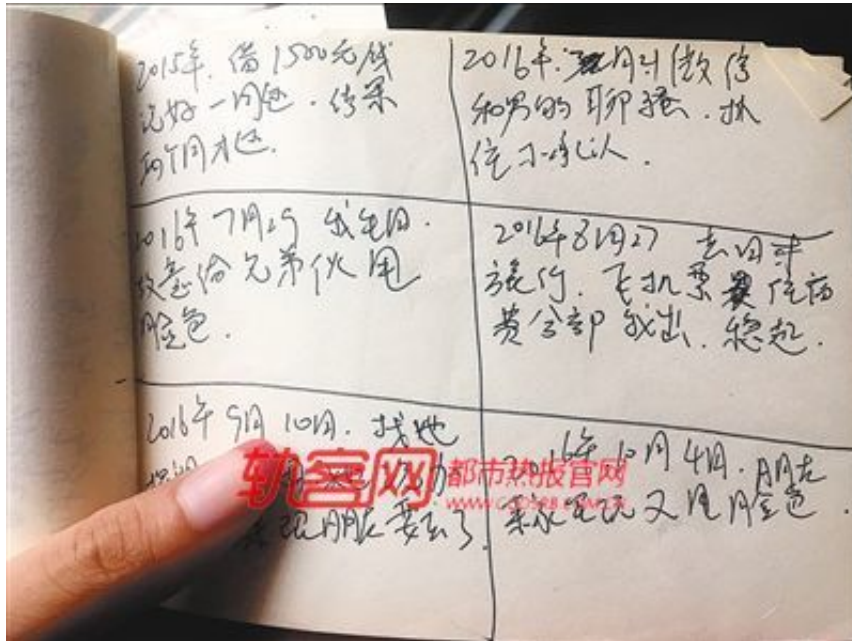 2015年.借1500元钱
说好一月还.结果
两个月才还.
2016年 7月29 我生日.
故意给兄弟伙甩
脸色.
2016年9月10日.找她
说现朋友要去了.
2016年. 月21微信
和男的聊骚.抓
住不承认.
2016年8月27 去日本
旅行.飞机票 住宿
费全部我出.稳起.
2016年10月4日.朋友
来家里玩又甩脸色.
轨客网 都市热报官网